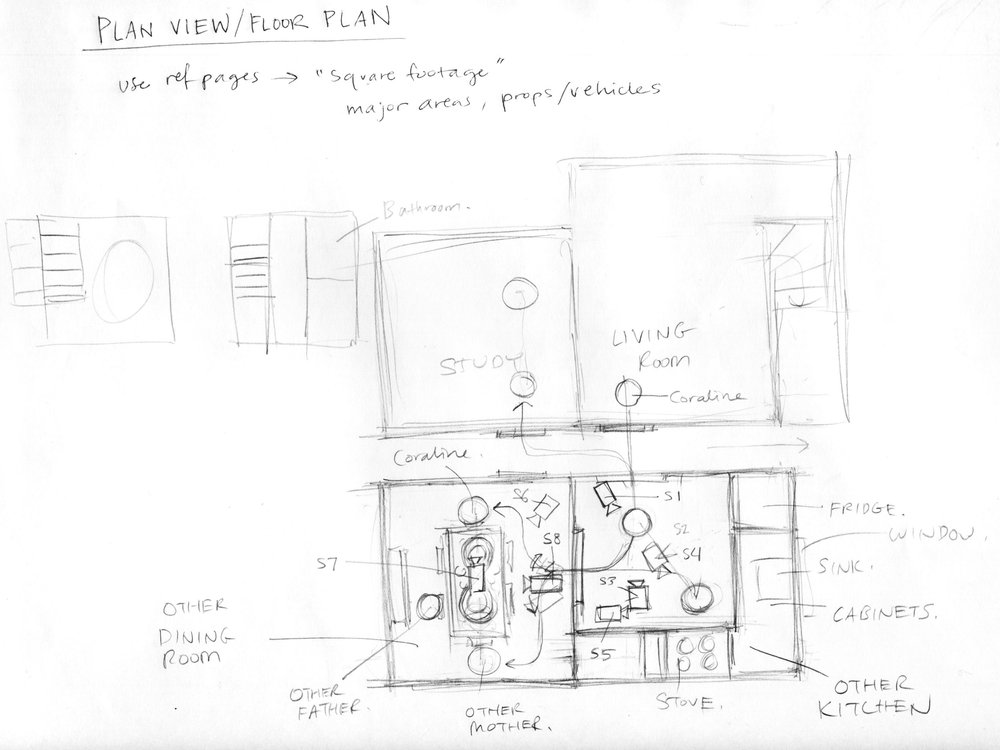 PLAN VIEW/FLOOR PLAN
use ref pages → "square footage"
major areas, props/vehicles
Bathroom.
LIVING
Room
STUDY
Coraline
Coraline.
S6
S1
FRIDGE.
S2
WINDOW.
S8
S4
S7
SINK.
S3
OTHER
DINING
ROOM
CABINETS.
S5
OTHER
FATHER.
OTHER
MOTHER.
STOVE.
OTHER
KITCHEN